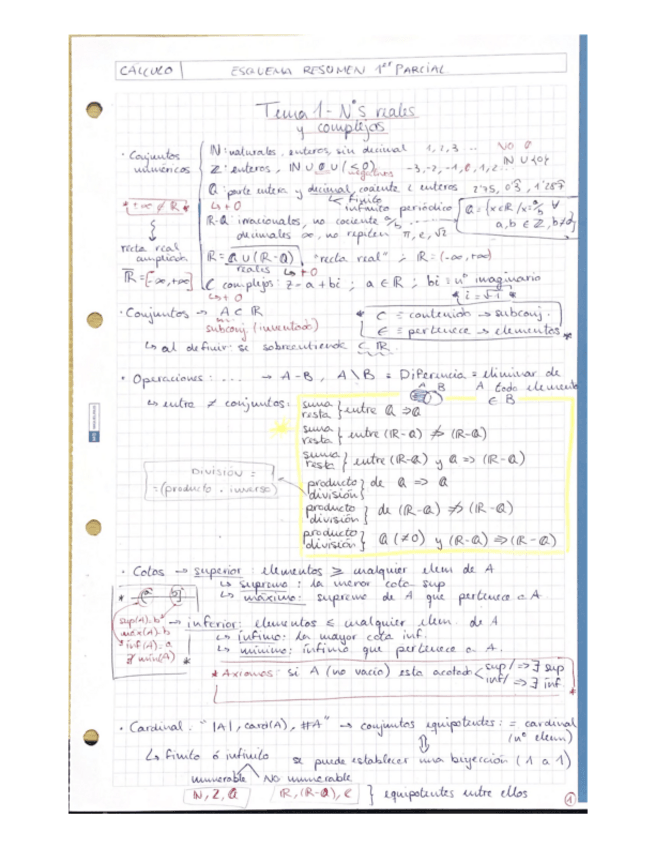 CÁLCULO | ESQUEMA RESUMEN 1er PARCIAL
Tema 1 - Nºs reales
y complejos
· Conjuntos
numéricos
* ±∞ ∉ ℝ *
recta real
ampliada
ℝ̅ = [-∞,+∞]
ℕ: naturales, enteros, sin decimal 1, 2, 3 ... NO 0
ℤ: enteros, ℕ ∪ 0 ∪ (≤0) -3,-2,-1,0,1,2... ℕ ∪ {0}
negativos
ℚ: parte entera y decimal, cociente ℂ enteros 2'75, 0'3, 1'257
finito
infinito periódico
↳ + 0
ℚ = {x∈ℝ / x = a/b ∀
a,b ∈ ℤ, b≠0}
ℝ-ℚ: irracionales, no cociente a/b
decimales ∞, no repiten π, e, √2
ℝ = ℚ ∪ (ℝ-ℚ), "recta real" ; ℝ = (-∞,+∞)
reales ↳ + 0
ℂ complejos: z = a + bi ; a ∈ ℝ ; bi = nº imaginario
↳ + 0
* i = √-1 *
· Conjuntos → A ⊂ ℝ
subconj. (inventado)
* ⊂ ≡ contenido → subconj.
∈ ≡ pertenece → elementos *
↳ al definir: se sobreentiende ⊂ ℝ
· Operaciones: ... → A-B, A\B = Diferencia = eliminar de
A todo elemento
∈ B
A B
↳ entre ≠ conjuntos:
suma
resta } entre ℚ ⇒ ℚ
suma
resta } entre (ℝ-ℚ) ⇏ (ℝ-ℚ)
suma
resta } entre (ℝ-ℚ) y ℚ ⇒ (ℝ-ℚ)
DIVISIÓN =
= (producto · inverso)
producto
división } de ℚ ⇒ ℚ
producto
división } de (ℝ-ℚ) ⇏ (ℝ-ℚ)
producto
división } ℚ (≠0) y (ℝ-ℚ) ⇒ (ℝ-ℚ)
· Cotas → superior: elementos ≥ cualquier elem de A
↳ supremo: la menor cota sup
↳ máximo: supremo de A que pertenece a A.
sup(A)=b
max(A)=b
inf(A)=a
∄ min(A)
→ inferior: elementos ≤ cualquier elem. de A
↳ ínfimo: la mayor cota inf.
↳ mínimo: ínfimo que pertenece a A.
* Axiomas: si A (no vacío) esta acotado
sup/ ⇒ ∃ sup
inf/ ⇒ ∃ inf *
· Cardinal. "|A|, card(A), #A" → conjuntos equipotentes: = cardinal
(nº elem)
↳ Finito ó infinito
se puede establecer una biyección (1 a 1)
numerable NO numerable
ℕ, ℤ, ℚ ℝ, (ℝ-ℚ), ℂ } equipotentes entre ellos
1